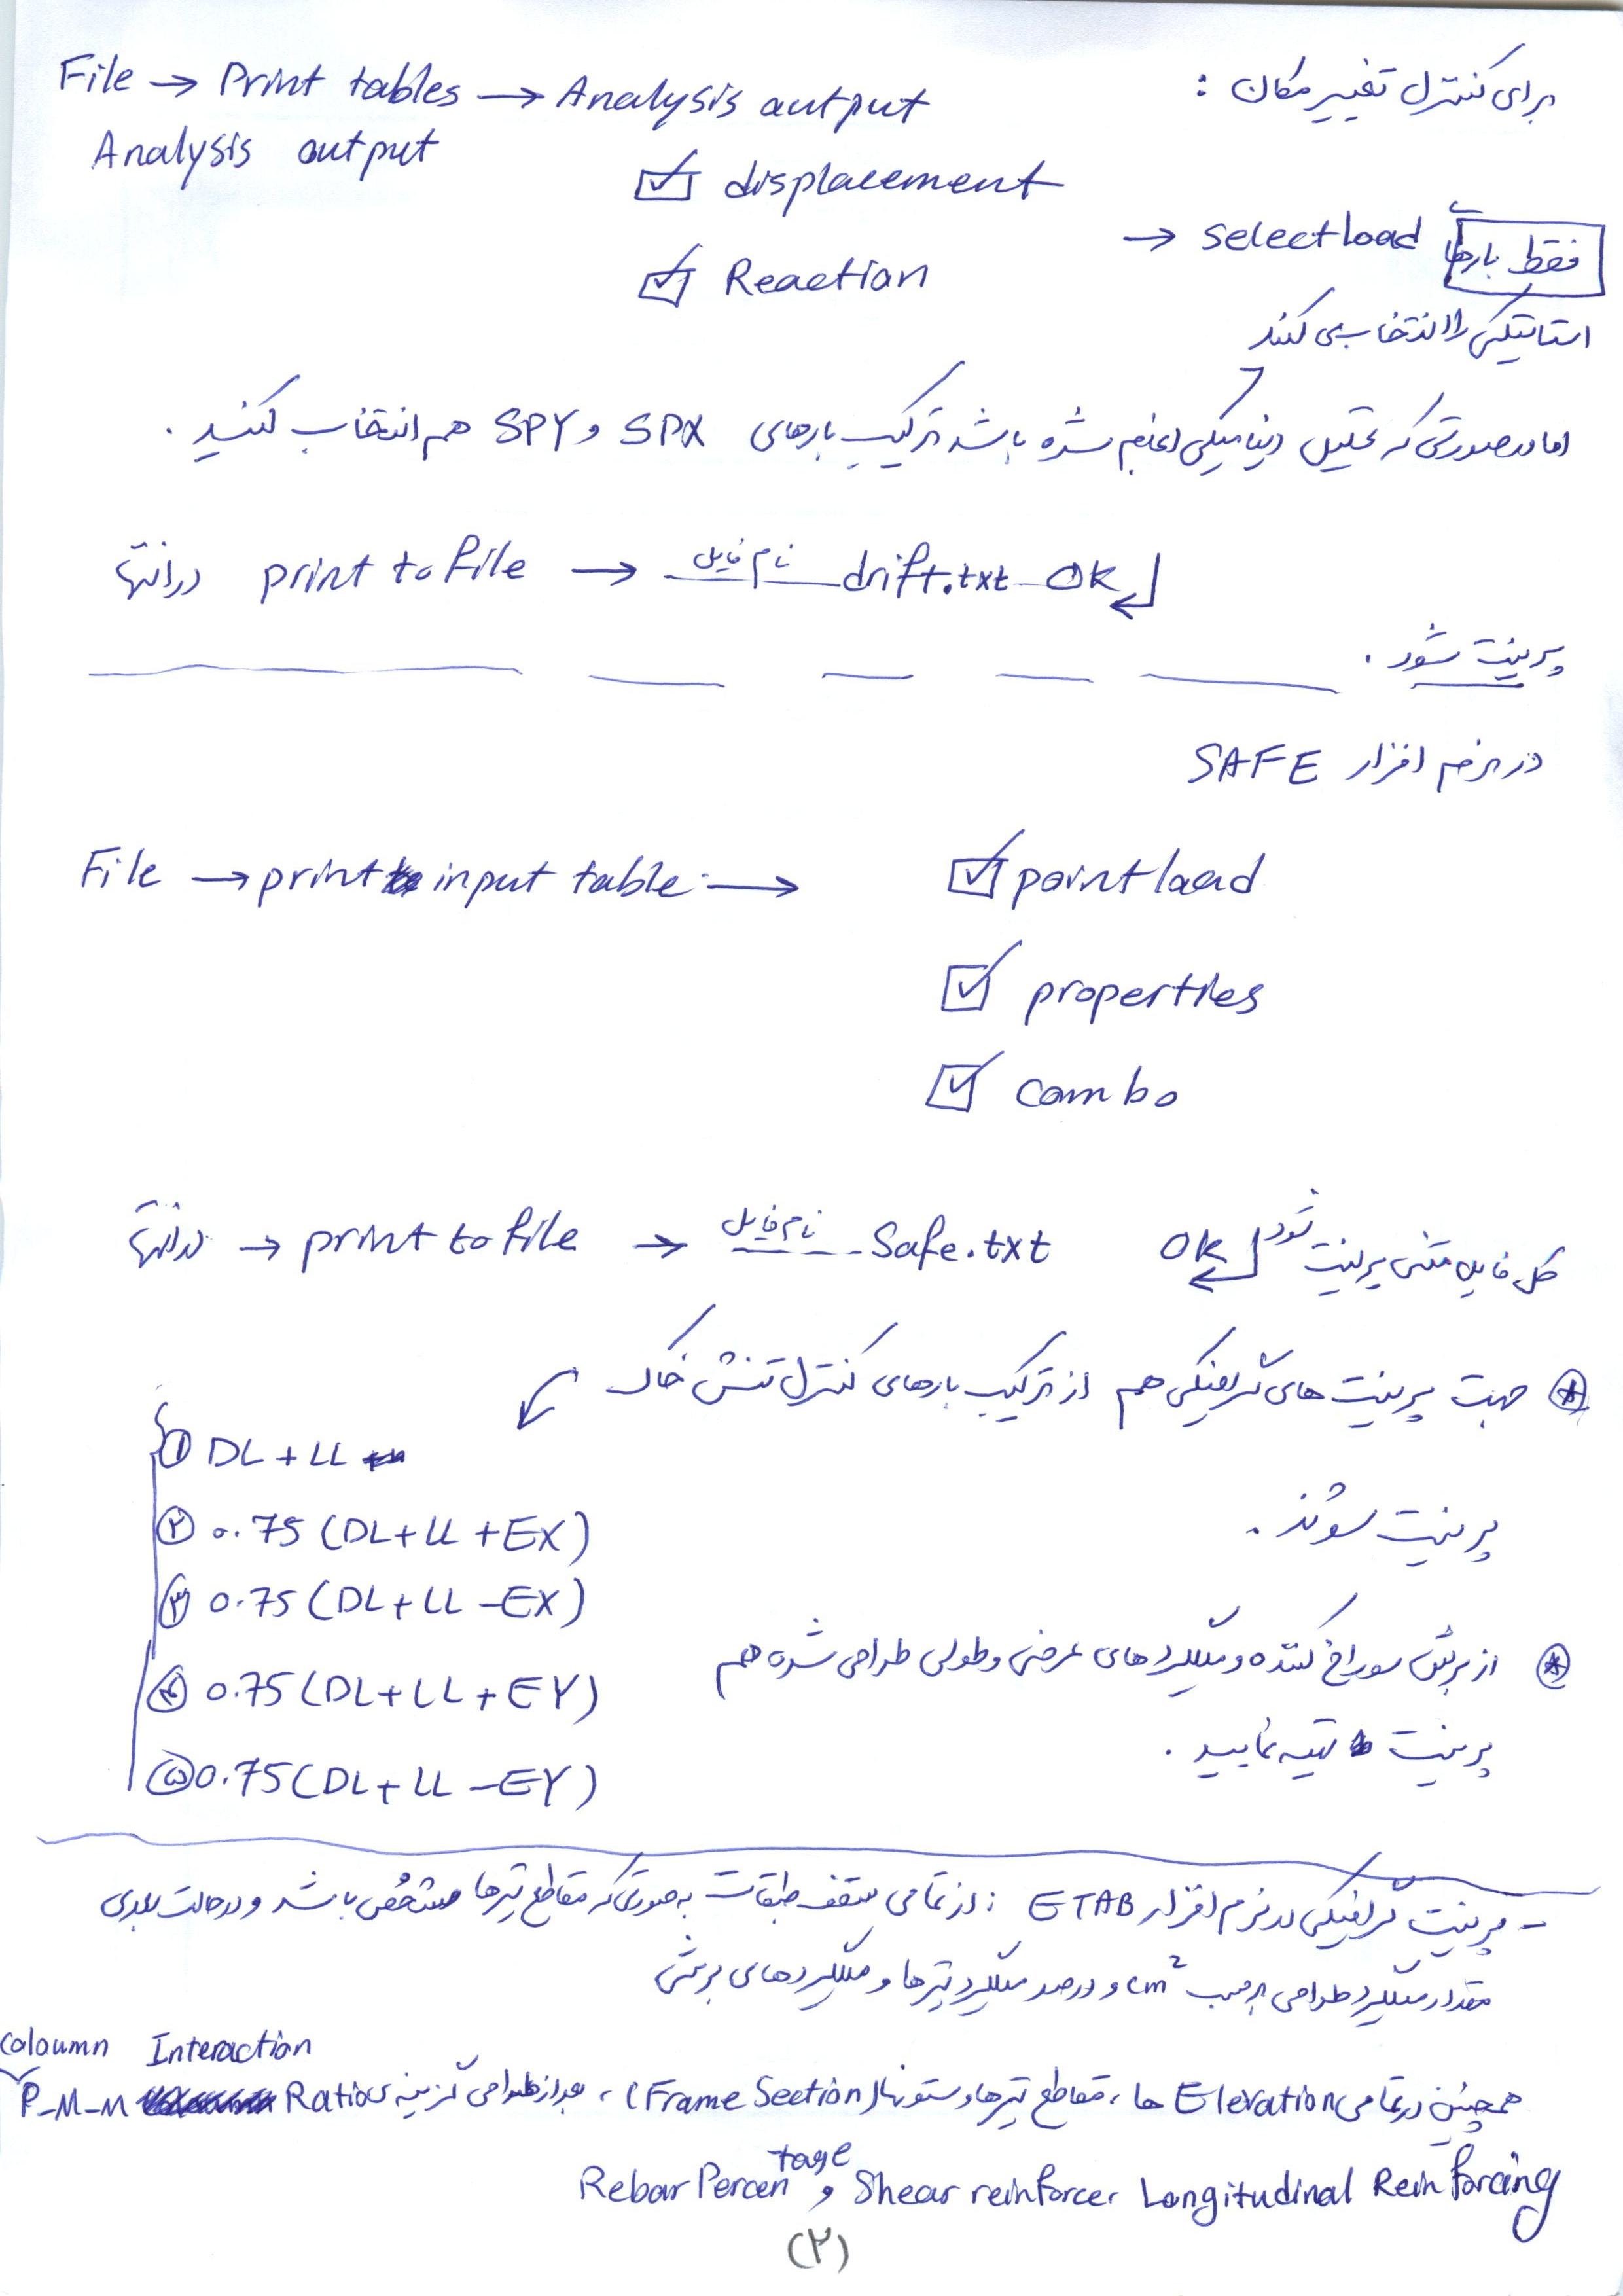 برای کنترل تغییر مکان :
File → Print tables → Analysis output
Analysis output
☑ displacement
☑ Reaction
→ select load فقط بارهای
استاتیکی را انتخاب می کنند
اما در صورتی که تحلیل دینامیکی انجام شده باشد ترکیب بارهای SPX و SPY هم انتخاب کنید .
در انتها print to file → نام فایل drift.txt OK ↵
پرینت شود .
در نرم افزار SAFE
File → print input table → ☑ point load
☑ properties
☑ combo
در انتها → print to file → نام فایل Safe.txt OK ↵ کل فایل متنی پرینت شود
⊛ جهت پرینت های گرافیکی هم از ترکیب بارهای کنترل تنش خاک
پرینت شوند .
① DL + LL
② 0.75 (DL + LL + EX)
③ 0.75 (DL + LL - EX)
④ 0.75 (DL + LL + EY)
⑤ 0.75 (DL + LL - EY)
⊛ از برش سوراخ کننده و میلگردهای عرضی و طولی طراحی شده هم
پرینت تهیه نمایید .
- پرینت گرافیکی در نرم افزار ETAB : از تمامی سقف طبقات به صورتی که مقاطع تیرها مشخص باشد و در حالت بعدی
مقدار میلگرد طراحی برحسب cm² و درصد میلگرد تیرها و میلگردهای برشی
همچنین در تمامی Elevation ها ، مقاطع تیرها و ستونها (Frame Section) ، بعد از طراحی گزینه Coloumn P-M-M Interaction Ratios
Longitudinal Reinforcing Shear reinforcer و Rebar Percentage
(۲)